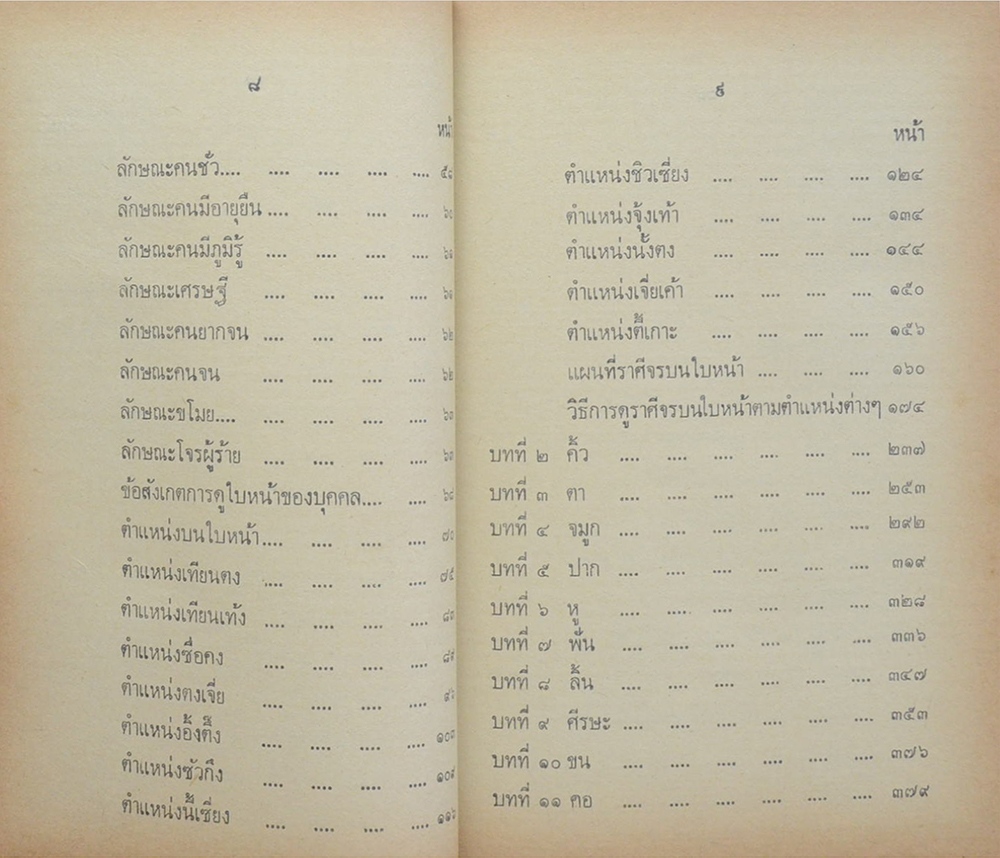 ๘
หน้า
ลักษณะคนชั่ว.... .... .... .... .... ๕๘
ลักษณะคนมีอายุยืน .... .... .... .... ๖๐
ลักษณะคนมีภูมิรู้ .... .... .... ....
ลักษณะเศรษฐี .... .... .... ....
ลักษณะคนยากจน .... .... .... .... ๖๒
ลักษณะคนจน .... .... .... .... ๖๒
ลักษณะขโมย.... .... .... .... .... ๖๓
ลักษณะโจรผู้ร้าย .... .... .... .... ๖๓
ข้อสังเกตการดูใบหน้าของบุคคล.... .... ๖๘
ตำแหน่งบนใบหน้า.... .... .... .... ๗๐
ตำแหน่งเทียนตง .... .... .... .... ๗๕
ตำแหน่งเทียนเท้ง .... .... .... .... ๘๓
ตำแหน่งซื่อคง .... .... .... .... ๘๙
ตำแหน่งตงเจี่ย .... .... .... .... ๙๖
ตำแหน่งอิ้งตึ๊ง .... .... .... .... ๑๐๓
ตำแหน่งซัวกึง .... .... .... .... ๑๐๙
ตำแหน่งนี้เซี่ยง .... .... .... .... ๑๑๖
๙
หน้า
ตำแหน่งชิวเซี่ยง .... .... .... .... ๑๒๔
ตำแหน่งจุ้งเท้า .... .... .... .... ๑๓๔
ตำแหน่งนั้งตง .... .... .... .... ๑๔๔
ตำแหน่งเจี่ยเค้า .... .... .... .... ๑๕๐
ตำแหน่งตี้เกาะ .... .... .... .... ๑๕๖
แผนที่ราศีจรบนใบหน้า .... .... .... ๑๖๐
วิธีการดูราศีจรบนใบหน้าตามตำแหน่งต่างๆ ๑๗๔
บทที่ ๒ คิ้ว .... .... .... .... .... .... ๒๓๗
บทที่ ๓ ตา .... .... .... .... .... .... ๒๕๓
บทที่ ๔ จมูก .... .... .... .... .... .... ๒๙๒
บทที่ ๕ ปาก .... .... .... .... .... .... ๓๑๙
บทที่ ๖ หู .... .... .... .... .... .... ๓๒๘
บทที่ ๗ ฟัน .... .... .... .... .... .... ๓๓๖
บทที่ ๘ ลิ้น .... .... .... .... .... .... ๓๔๗
บทที่ ๙ ศีรษะ .... .... .... .... .... .... ๓๕๓
บทที่ ๑๐ ขน .... .... .... .... .... .... ๓๗๖
บทที่ ๑๑ คอ .... .... .... .... .... .... ๓๗๙